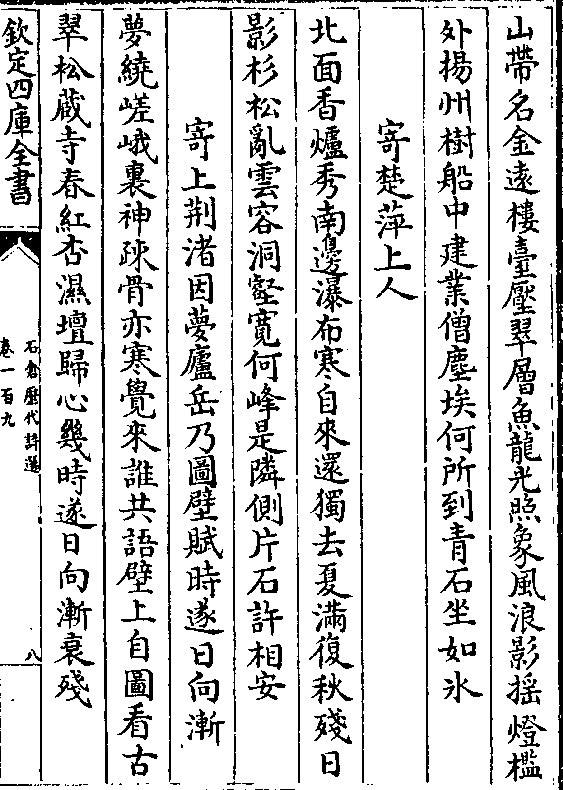 山帶名金遠樓臺壓翠層魚龍光照象風浪影揺燈檻
外揚州樹船中建業僧塵埃何所到青石坐如氷
寄楚萍上人
北面香爐秀南邊瀑布寒自來還獨去夏滿復秋殘日
影杉松亂雲容洞壑寛何峰是隣側片石許相安
寄上荆渚因夢廬岳乃圖壁賦時遂日向漸
夢繞嵯峨裏神疎骨亦寒覺來誰共語壁上自圖看古
翠松蔵寺春紅杏濕壇歸心幾時遂日向漸衰殘
欽定四庫全書
石倉歴代詩選
卷一百九
八